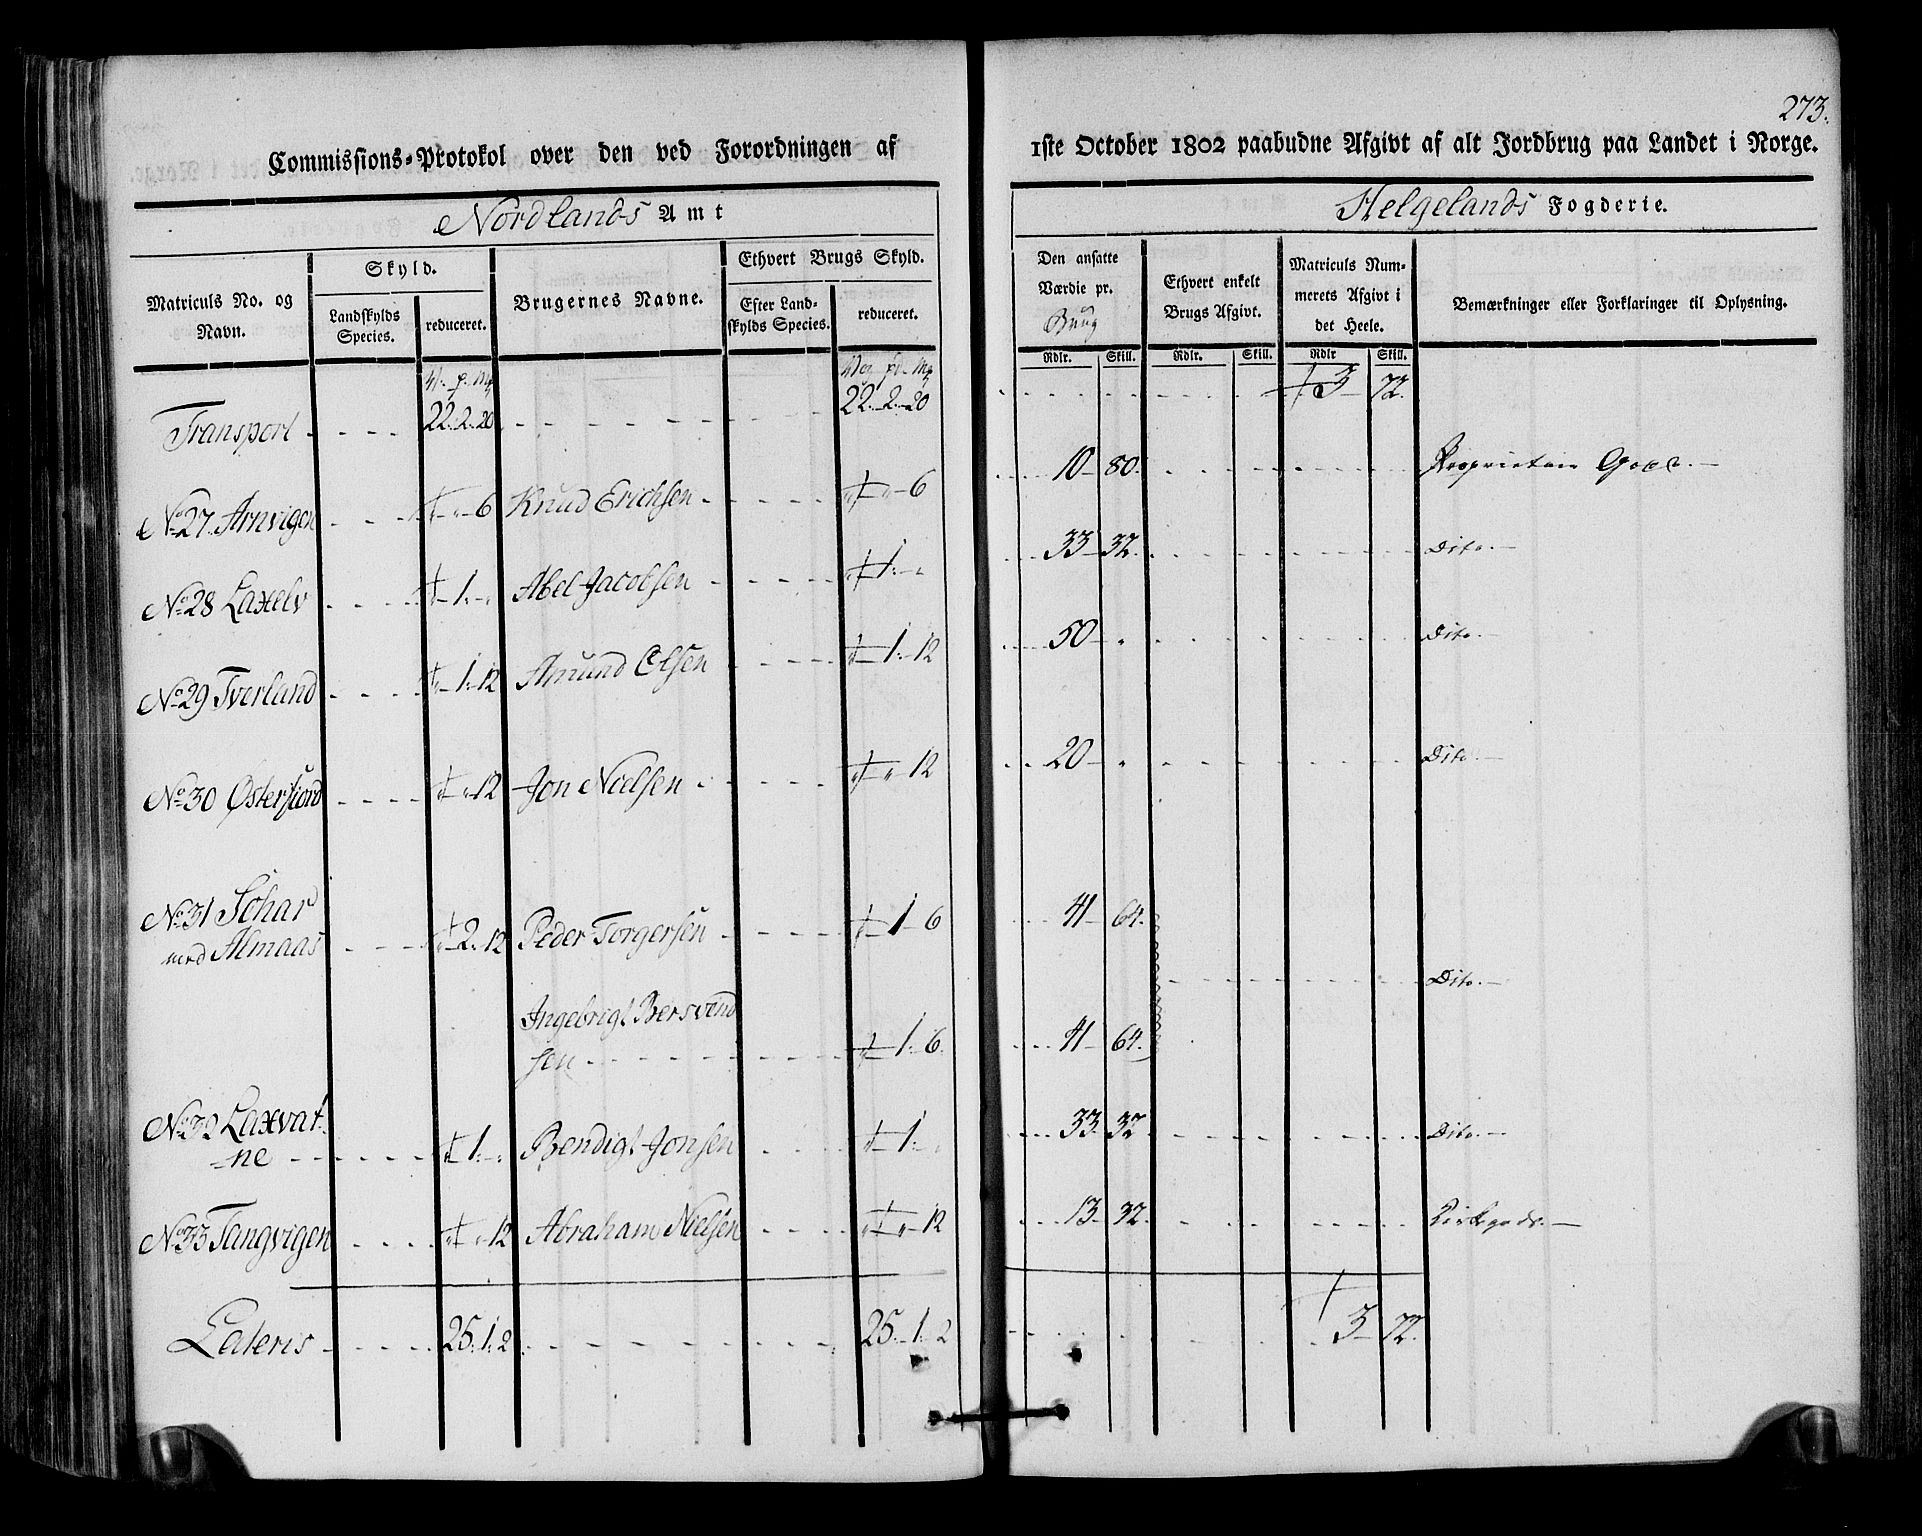 273.
Commissions-Protokol over den ved Forordningen af 1ste October 1802 paabudne Afgivt af alt Jordbrug paa Landet i Norge.
Nordlands Amt
Helgelands Fogderie.
Matriculs No. og Navn.
Skyld.
Landskylds Species.
reduceret.
Brugernes Navne.
Ethvert Brugs Skyld.
Efter Landskylds Species.
reduceret.
Den ansatte Værdie pr. Brug
Ethvert enkelt Brugs Afgivt.
Matriculs Nummerets Afgivt i det Heele.
Bemærkninger eller Forklaringer til Oplysning.
Rdlr. Skill. Rdlr. Skill. Rdlr Skill.
Transport 22. 2. 20 22. 2. 20 3 72.
No 27 Arnvigen 6 Knud Erichsen 6 10 80. Proprietair Godt.
No 28 Laxelv 1. Abel Jacobsen 1. 33 32. Dito.
No 29 Tverland 1. 12 Amund Olsen 1. 12 50 Dito.
No 30 Østerfiord 12 Jon Nielsen 12 20 Dito.
No 31 Sohar
med Almaas 2. 12 Peder Torgersen 1 6 41 64.
Dito.
Ingebrigt Bersvend
sen 1. 6. 41 64.
No 32 Laxvat
ne 1. Bendigt Jonsen 1. 33 32 Dito.
No 33 Tangvigen 12 Abraham Nielsen 12 13 32. Kirkegods.
Lateris 25. 1. 2 25. 1. 2 3 72.